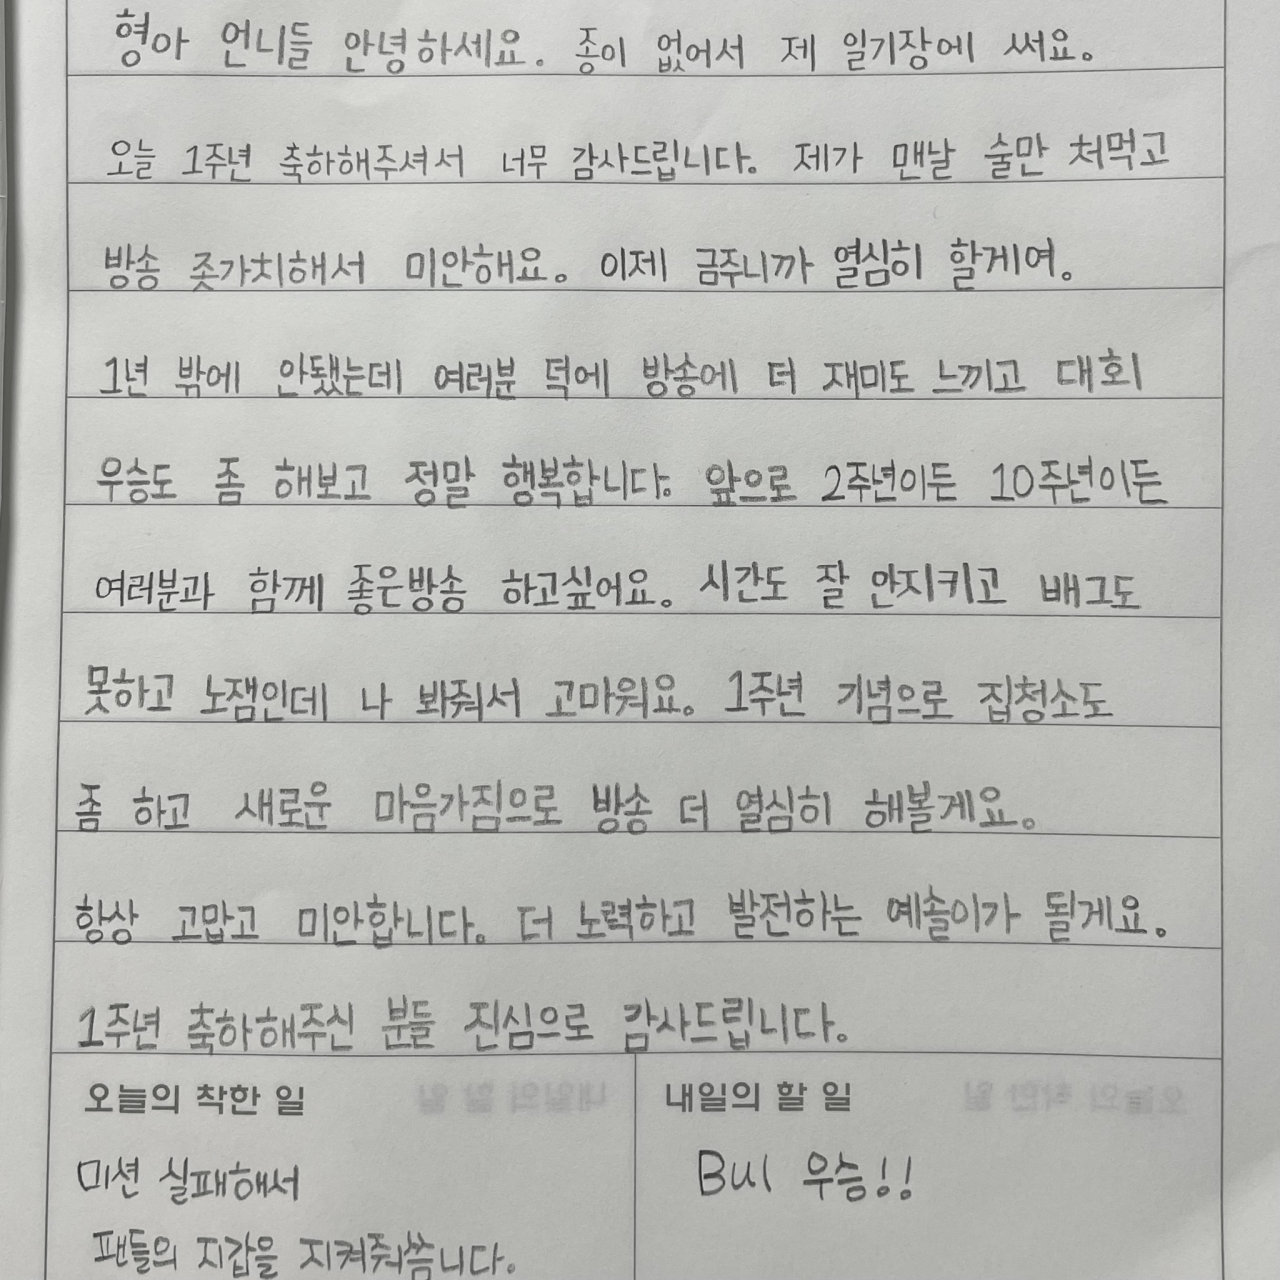 형아 언니들 안녕하세요. 종이 없어서 제 일기장에 써요.
오늘 1주년 축하해주셔서 너무 감사드립니다. 제가 맨날 술만 처먹고
방송 좃가치해서 미안해요. 이제 금주니까 열심히 할게여.
1년 밖에 안됐는데 여러분 덕에 방송에 더 재미도 느끼고 대회
우승도 좀 해보고 정말 행복합니다. 앞으로 2주년이든 10주년이든
여러분과 함께 좋은방송 하고싶어요. 시간도 잘 안지키고 배그도
못하고 노잼인데 나 봐줘서 고마워요. 1주년 기념으로 집청소도
좀 하고 새로운 마음가짐으로 방송 더 열심히 해볼게요.
항상 고맙고 미안합니다. 더 노력하고 발전하는 예솔이가 될게요.
1주년 축하해주신 분들 진심으로 감사드립니다.
오늘의 착한 일
미션 실패해서
팬들의 지갑을 지켜줘씀니다.
내일의 할 일
Bul 우승!!